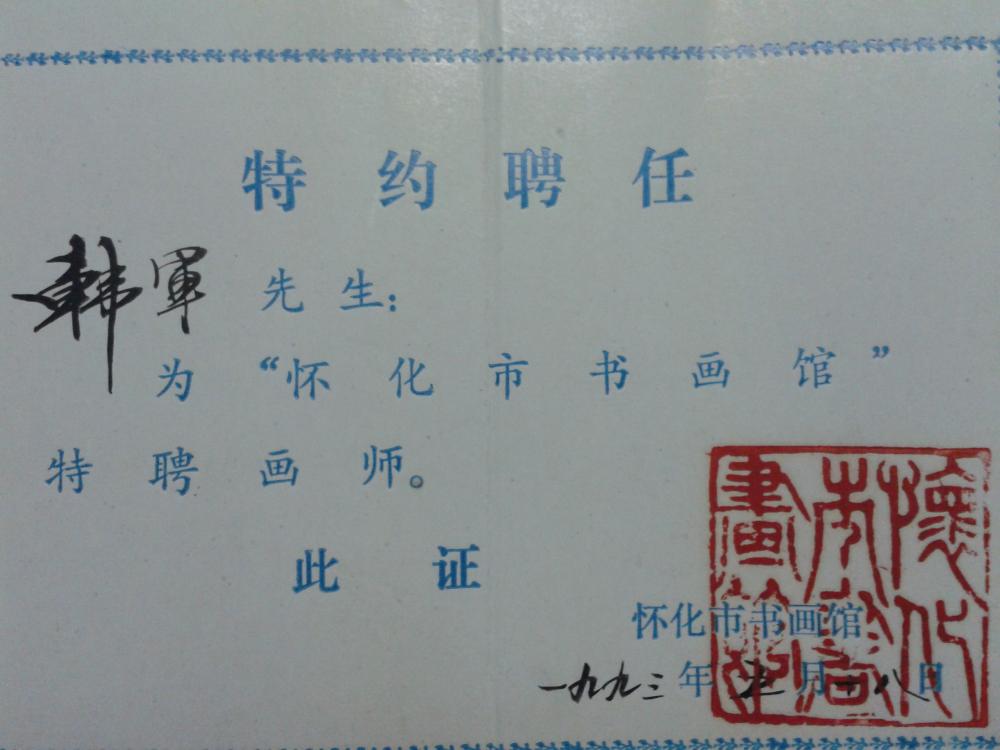 特约聘任
韩軍先生：
为“怀化市书画馆”
特聘画师。
此证
怀化市书画馆
一九九三年五月十八日
懷化市書畫館